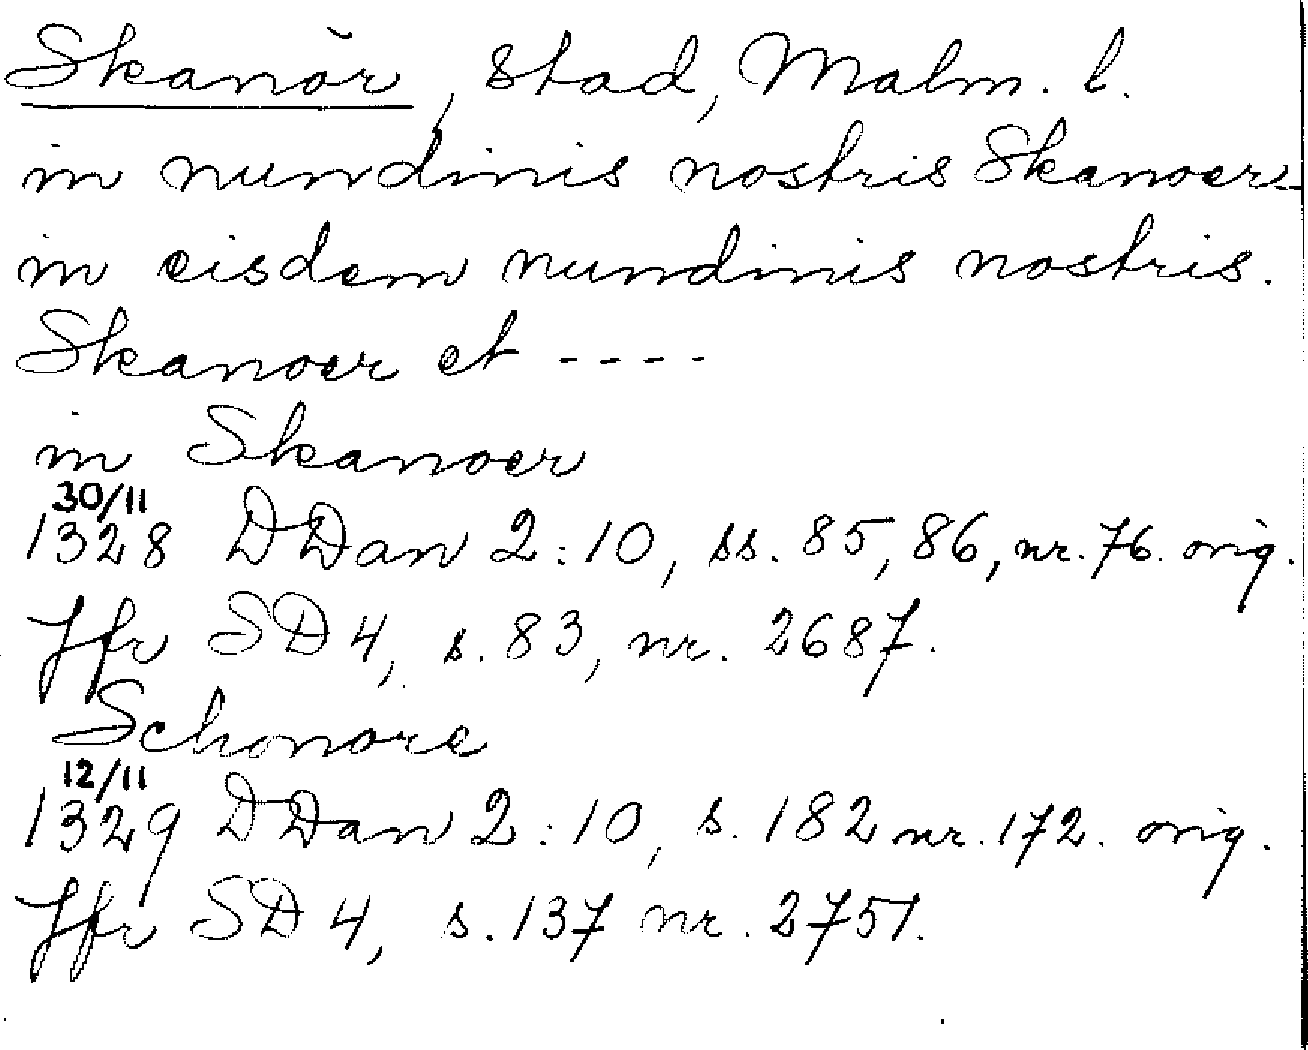 Skanör, stad, Malm. l.
in nundinis nostris Skanoer_
in eisdem nundinis nostris.
Skanoer et ----
in Skanoer
30/11
1328 DDan 2:10, ss. 85, 86, nr. 76. orig.
Jfr SD 4, s. 83, nr. 2687.
Schonore
12/11
1329 DDan 2:10, s. 182 nr. 172. orig.
Jfr SD 4, s. 137 nr. 2751.